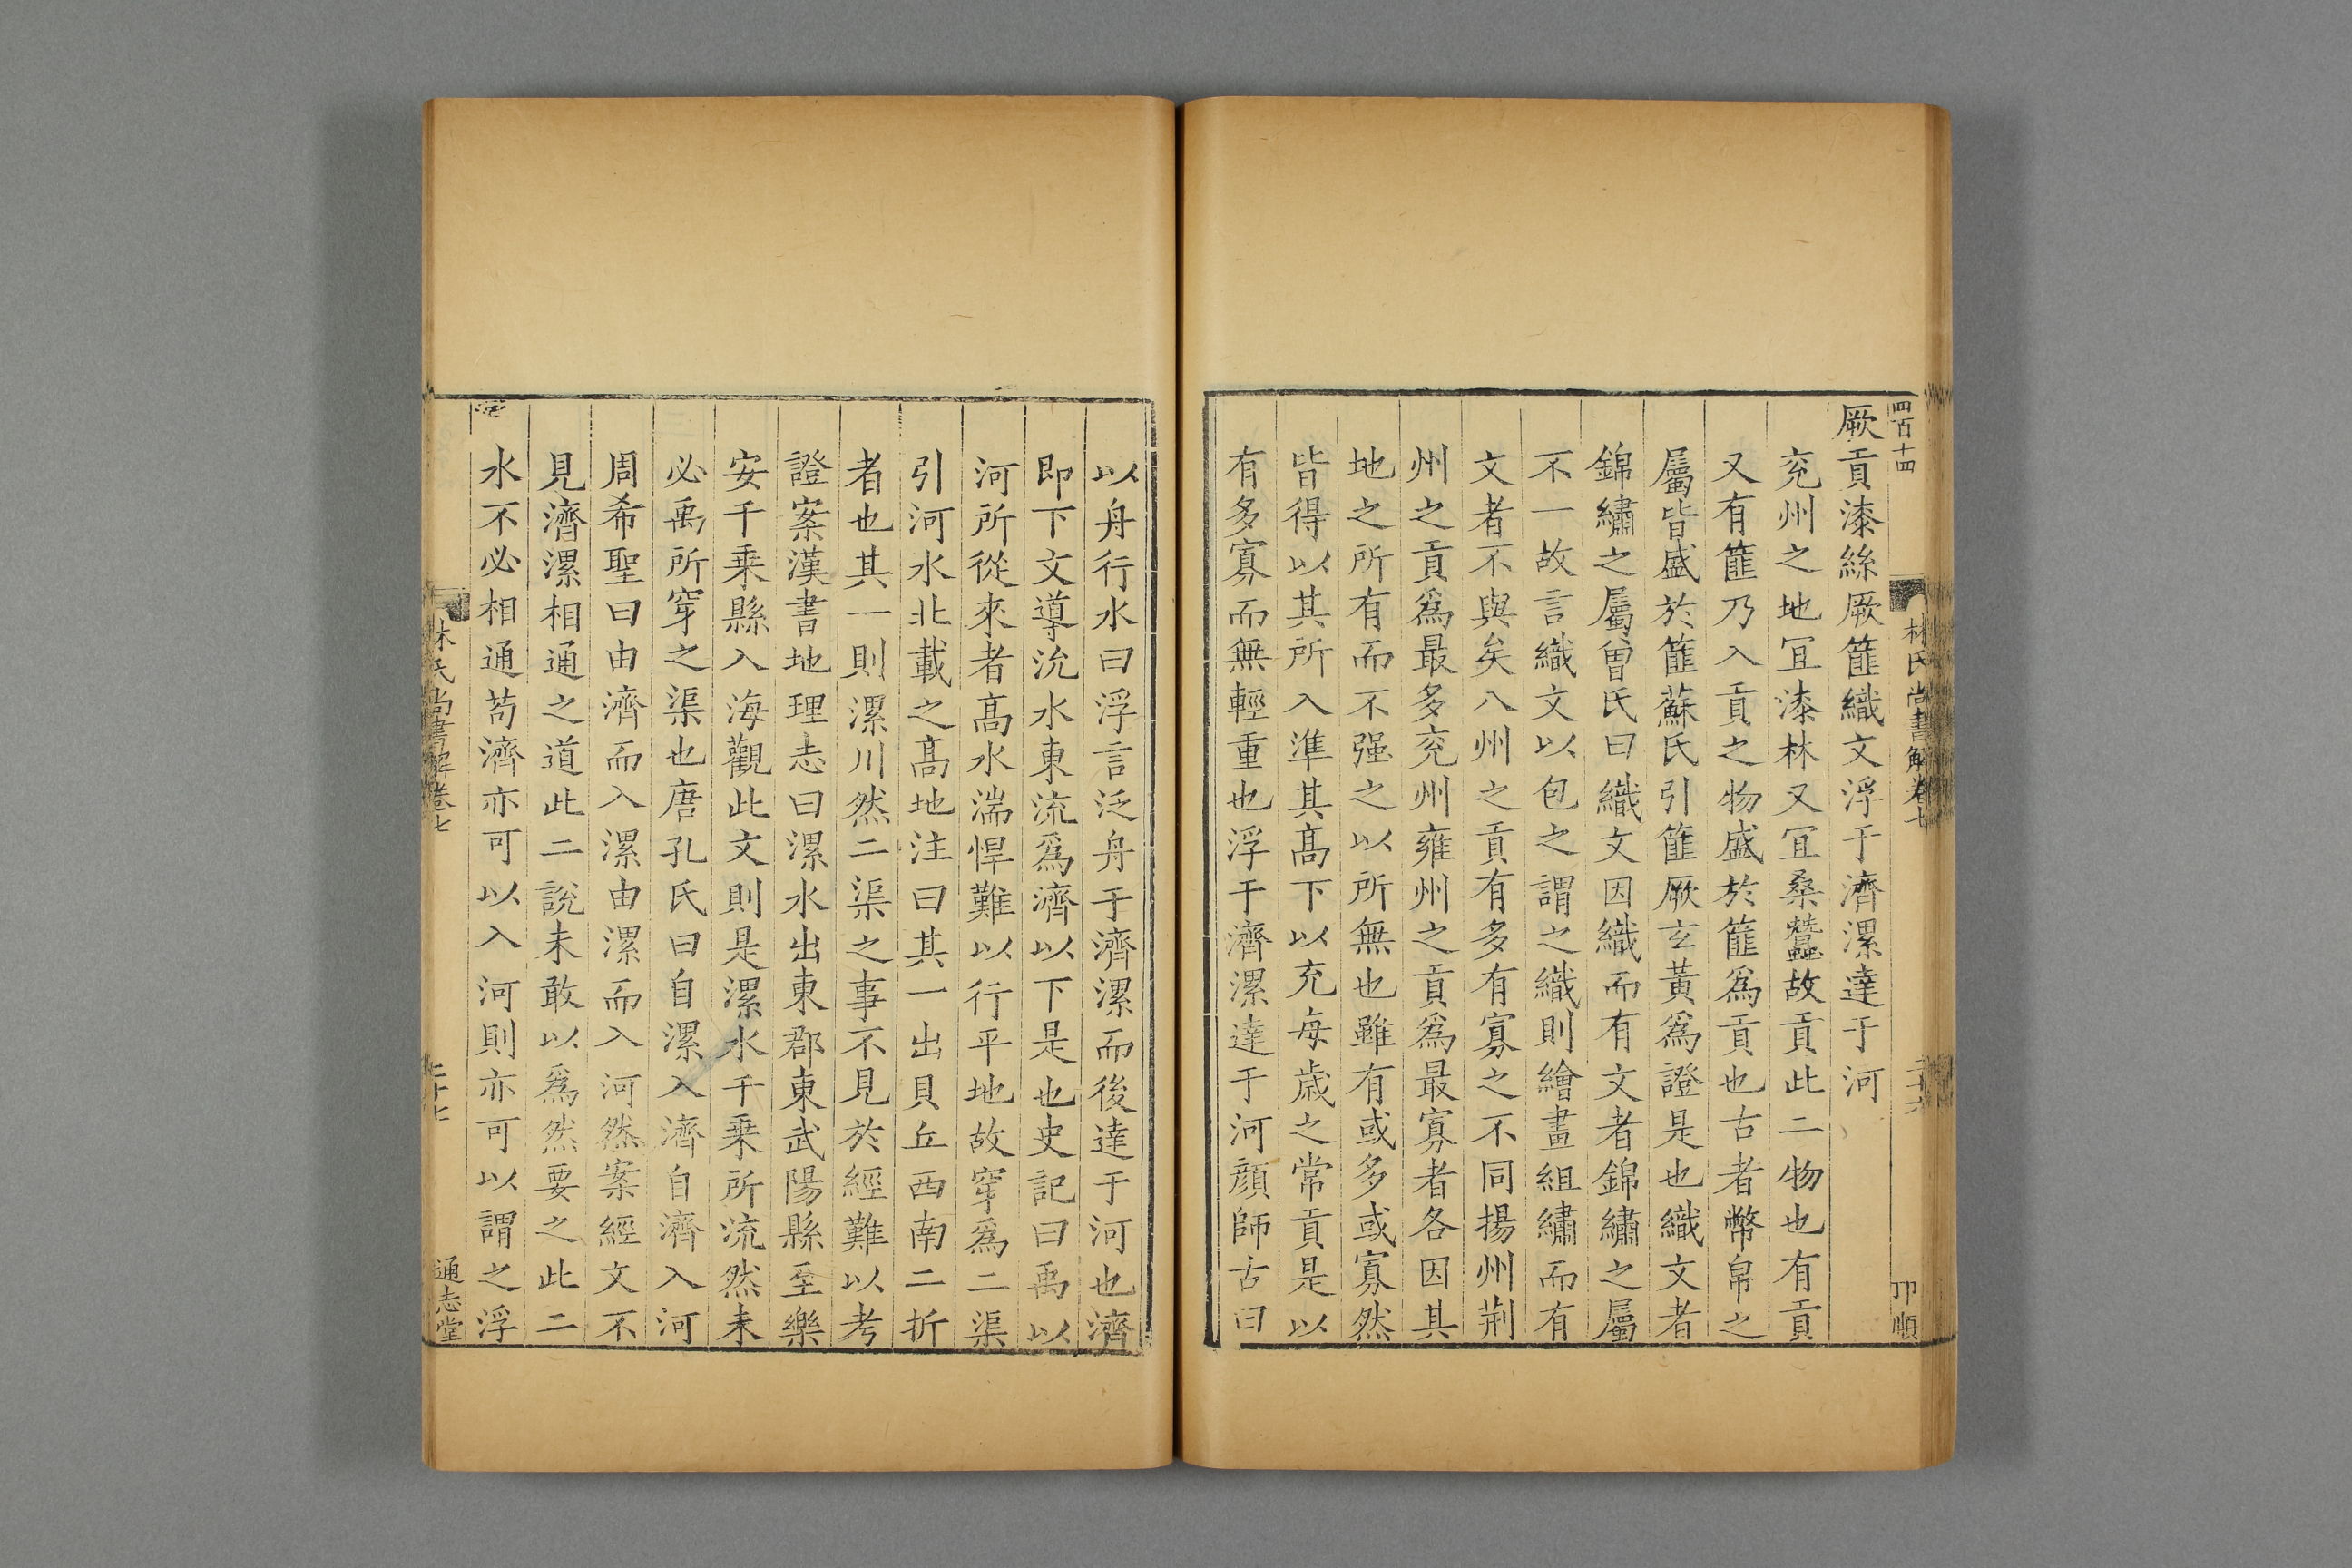 四百十四
林氏尚書解卷七
卭順
厥貢漆絲厥篚織文浮于濟漯達于河
兖州之地宜漆林又宜桑蠶故貢此二物也有貢
又有篚乃入貢之物盛於篚爲貢也古者幣帛之
屬皆盛於篚蘇氏引篚厥玄黃爲證是也織文者
錦繡之屬曾氏曰織文因織而有文者錦繡之屬
不一故言織文以包之謂之織則繪畫組繡而有
文者不與矣八州之貢有多有寡之不同揚州荆
州之貢爲最多兖州雍州之貢爲最寡者各因其
地之所有而不强之以所無也雖有或多或寡然
皆得以其所入準其髙下以充每歳之常貢是以
有多寡而無輕重也浮于濟漯達于河顔師古曰
以舟行水曰浮言泛舟于濟漯而後達于河也濟
即下文導沇水東流爲濟以下是也史記曰禹以
河所從來者髙水湍悍難以行平地故穿爲二渠
引河水北載之髙地注曰其一出貝丘西南二折
者也其一則漯川然二渠之事不見於經難以考
證案漢書地理志曰漯水出東郡東武陽縣至樂
安千乗縣入海觀此文則是漯水千乗所流然未
必禹所穿之渠也唐孔氏曰自漯入濟自濟入河
周希聖曰由濟而入漯由漯而入河然案經文不
見濟漯相通之道此二說未敢以爲然要之此二
水不必相通苟濟亦可以入河則亦可以謂之浮
林氏尚書解卷七
二十七
通志堂